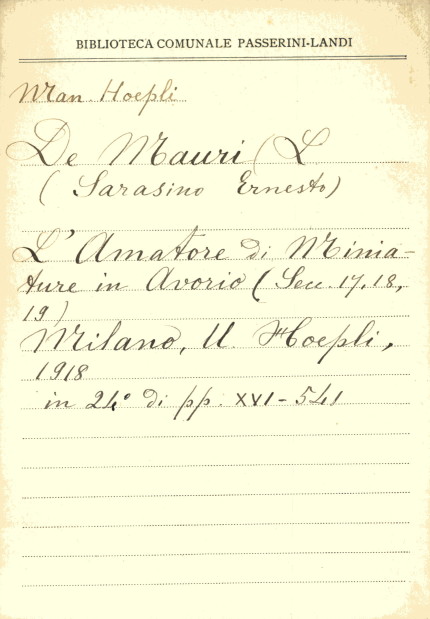 BIBLIOTECA COMUNALE PASSERINI-LANDI
Man Hoepli
De Mauri (L
( Sarasino Ernesto)
L'Amatore di Minia-
ture in Avorio (Sec. 17, 18,
19)
Milano, U. Hoepli,
1918
in 24° di pp. XVI-541